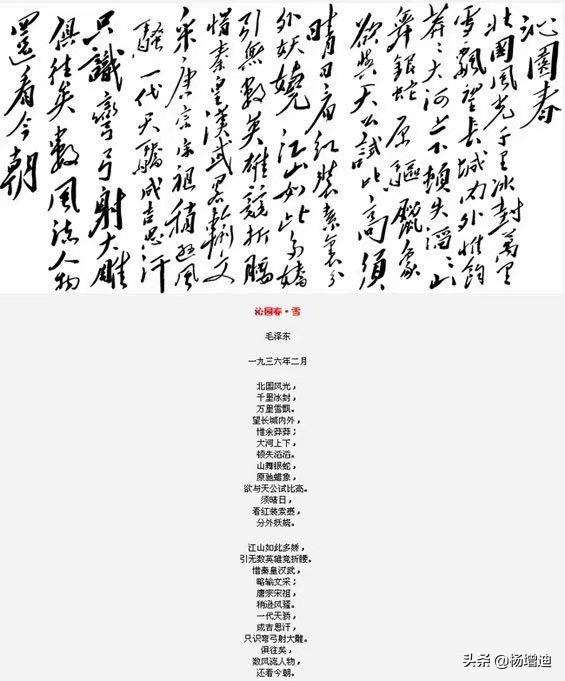 沁園春
北國風光千里冰封萬里
雪飄望長城内外惟餘
莽莽大河上下頓失滔滔山
舞銀蛇原驅蠟象
欲與天公試比高須
晴日看紅裝素裹分
外妖嬈江山如此多嬌
引無數英雄競折腰
惜秦皇漢武略輸文
采唐宗宋祖稍遜風
騷一代天驕成吉思汗
只識彎弓射大雕
俱往矣數風流人物
還看今朝
沁园春·雪
毛泽东
一九三六年二月
北国风光，
千里冰封，
万里雪飘。
望长城内外，
惟余莽莽；
大河上下，
顿失滔滔。
山舞银蛇，
原驰蜡象，
欲与天公试比高。
须晴日，
看红装素裹，
分外妖娆。
江山如此多娇，
引无数英雄竞折腰。
惜秦皇汉武，
略输文采；
唐宗宋祖，
稍逊风骚。
一代天骄，
成吉思汗，
只识弯弓射大雕。
俱往矣，
数风流人物，
还看今朝。
头条 @杨增迪